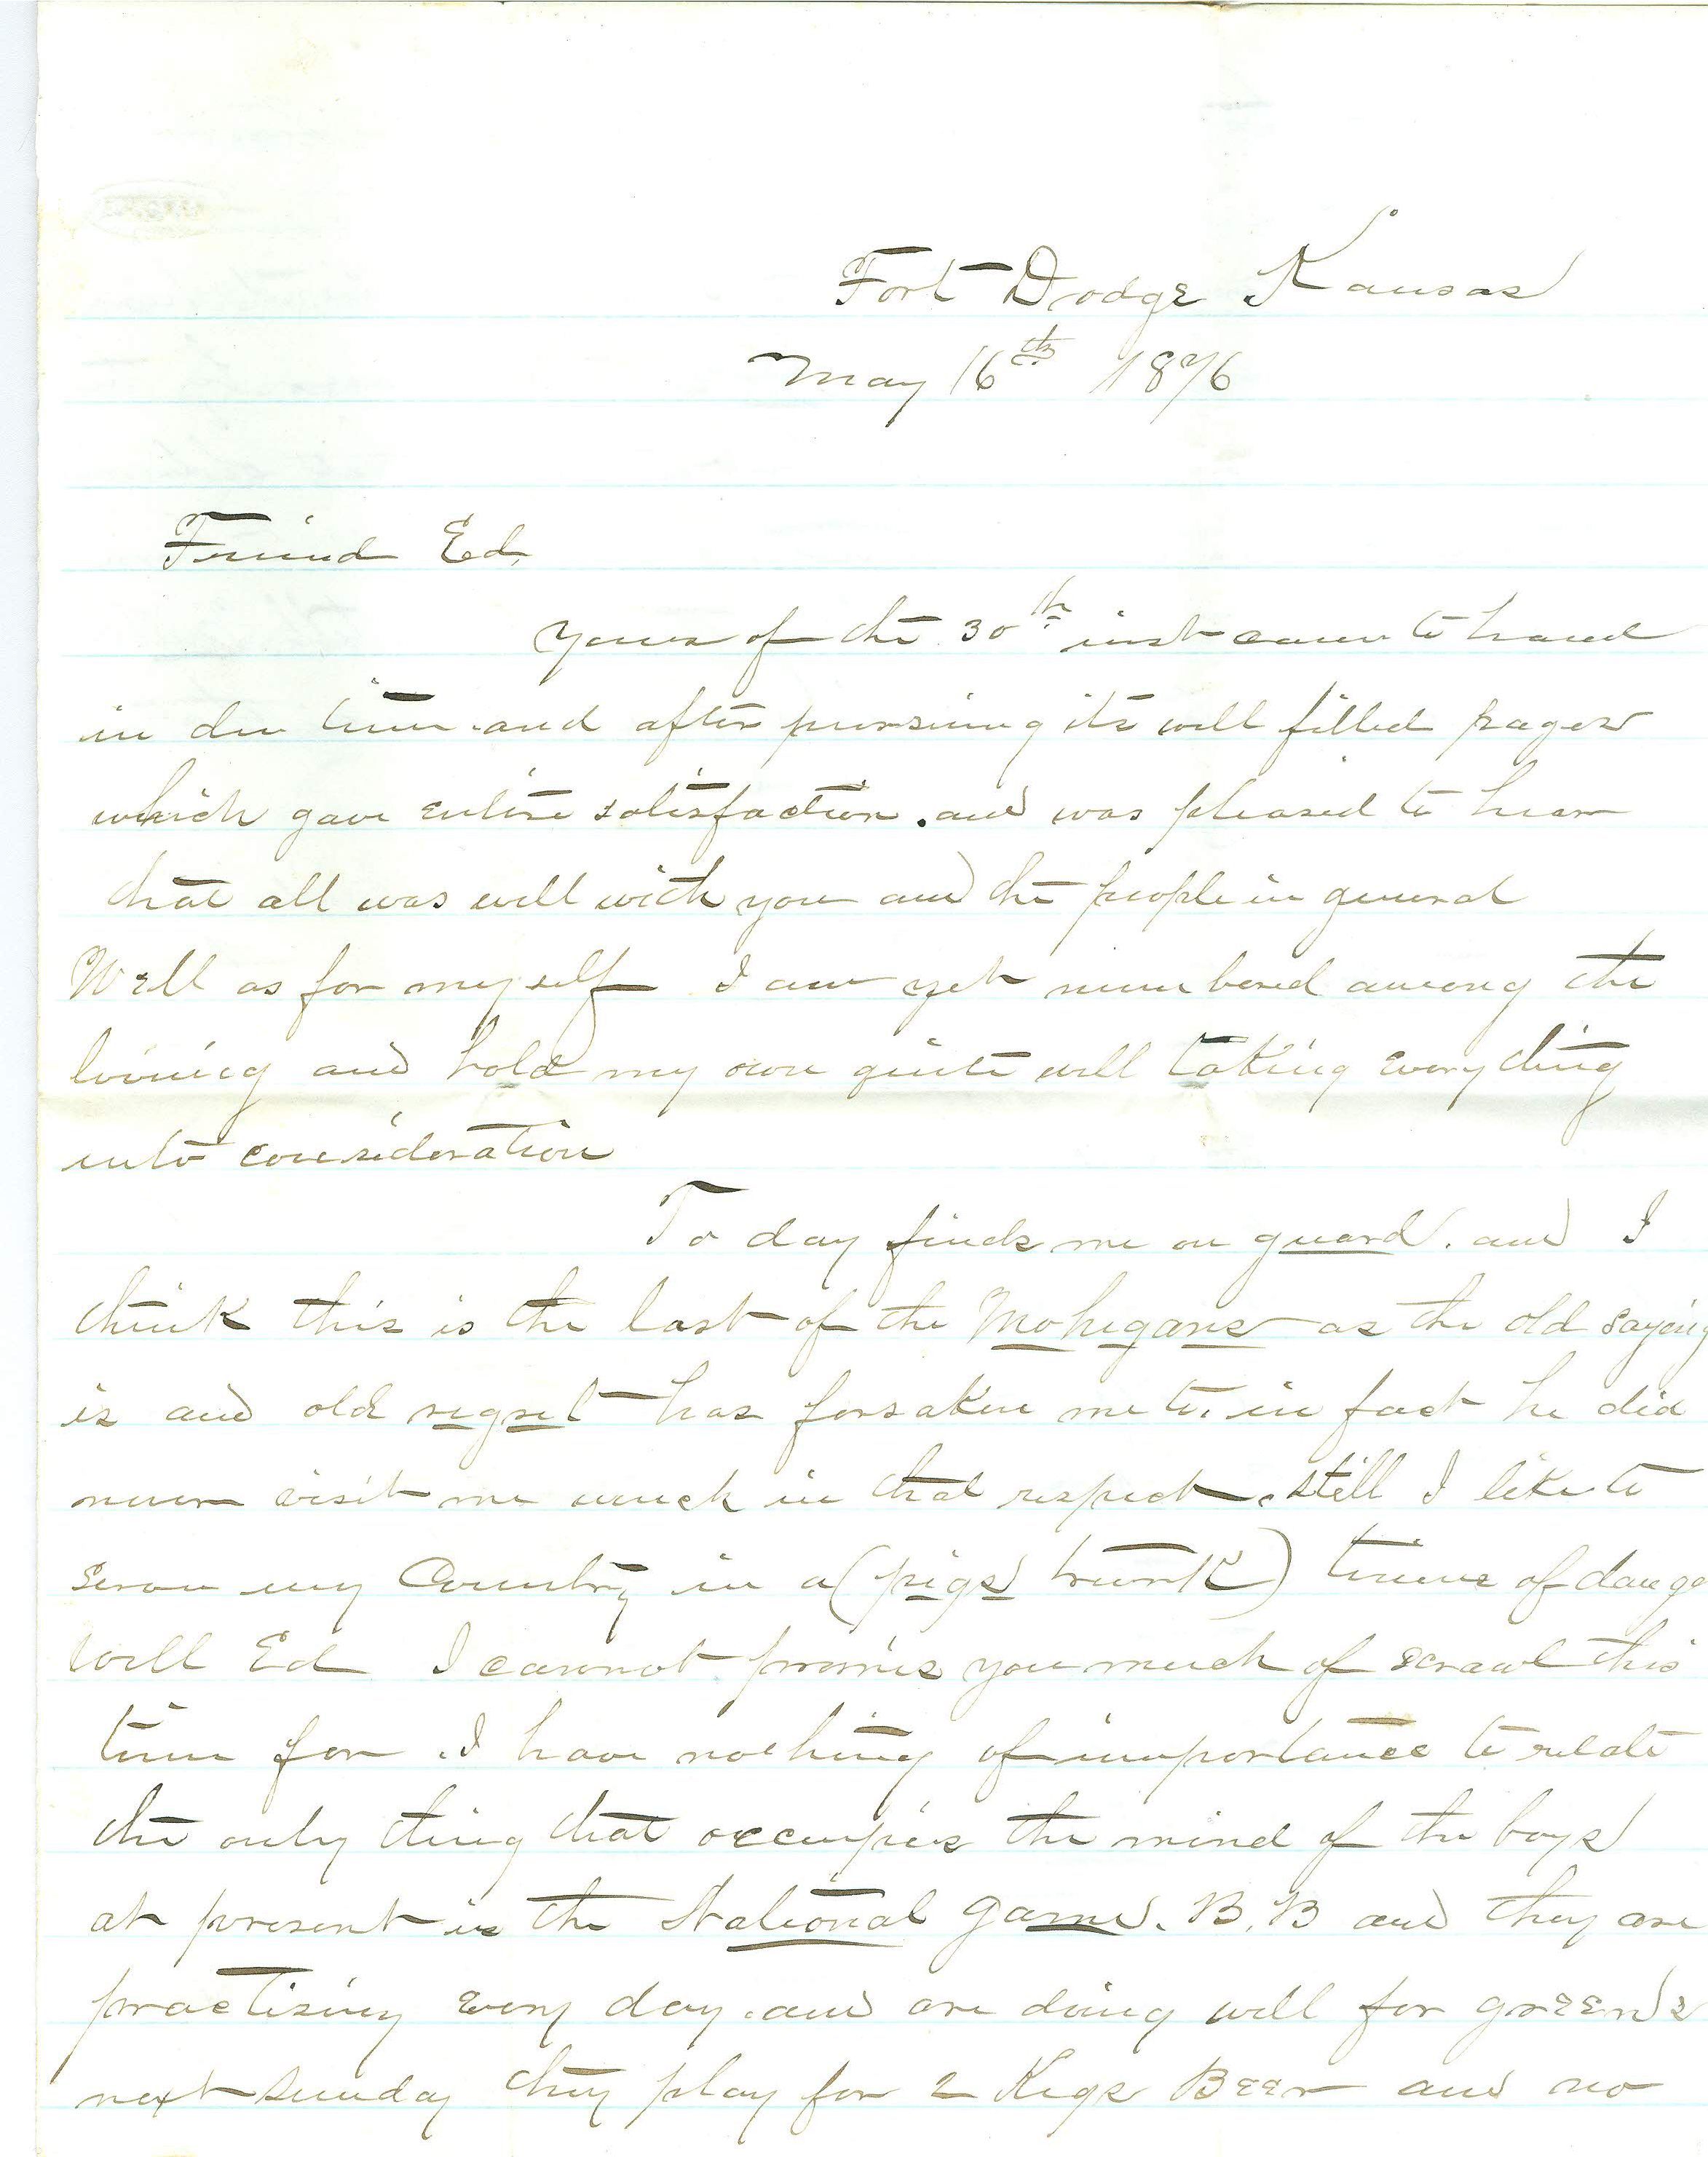 Fort Dodge Kansas
May 16th 1876
Friend Ed.
Yours of the 30th inst came to hand
in due time. and after perusing its well filled pages
which gave entire satisfaction. and was pleased to hear
that all was well with you and the people in general
Well as for myself I am yet numbered among the
living and hold my own quite well taking everything
into consideration
To day finds me on guard. and I
think this is the last of the Mohegans as the old saying
is and old regret has forsaken me to. in fact he did
never visit me much in that respect. still I like to
serve my Country in a (pigs trunk) time of dange
well Ed I cannot promis you much of scrawl this
time for. I have nothing of importance to relate
the only thing that occupies the mind of the boys
at present is the National game. B. B and they are
practising every day. and are doing well for greens
next Sunday they play for 2 Kegs Beer and no